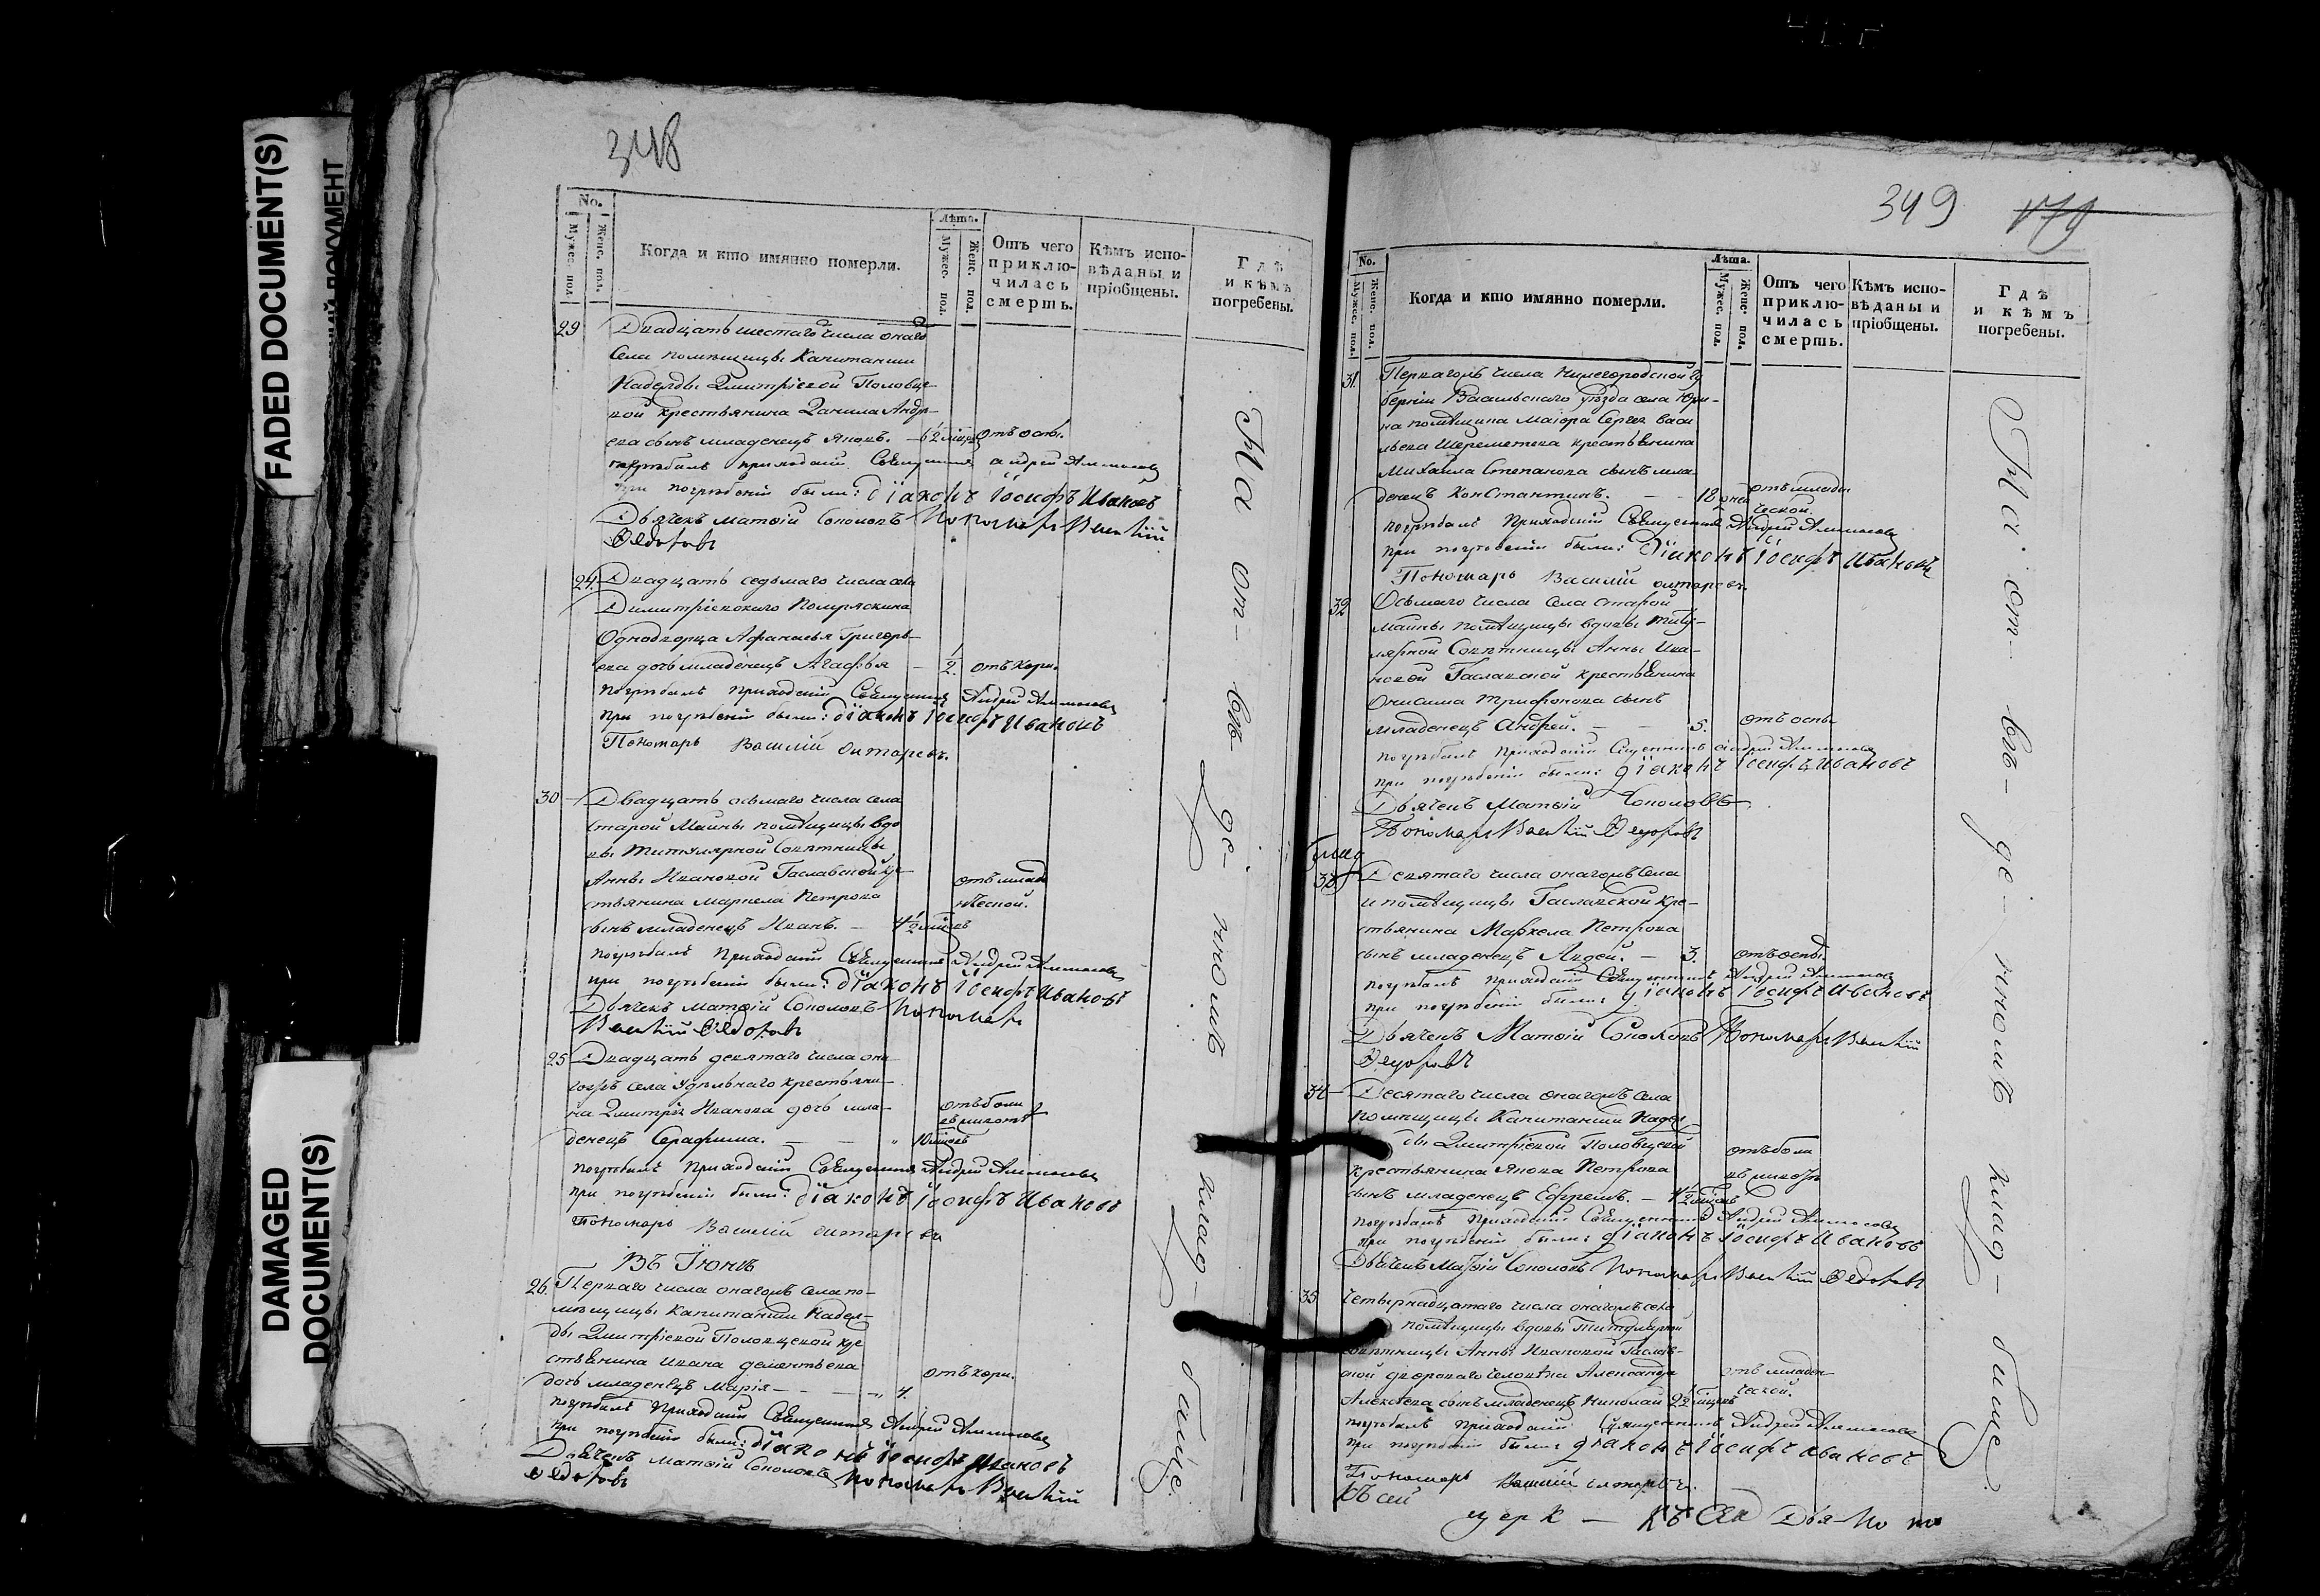 FADED DOCUMENT(S)
DAMAGED
DOCUMENT(S)
348
No.
Мужес. пол.
Женс. пол.
Когда и кто имянно померли.
Лѣта.
Мужес. пол.
Женс. пол.
Отъ чего
приклю-
чилась
смерть.
Кѣмъ испо-
вѣданы и
пріобщены.
Гдѣ
и кѣмъ
погребены.
29 Двадцать шестаго числа онаго
села помѣщицы Капитанши
Надежды Дмитріевой Половце-
вой крестьянина Данила Андр-
еева сынъ младенецъ Яковъ. отъ оспы.
погребалъ приходскій Священникъ Андрей
при погребеніи были: діаконъ Іосифъ Ивановъ
Дьячекъ Матѳій Соколовъ Пономарь Василій
Ѳедоровъ
24. Двадцать седьмаго числа села
Димитріевскаго Помряскина
Однодворца Афанасья Григорь-
ева дочь младенецъ Агафья 1/2. отъ кори.
погребалъ приходскій Священникъ Андрей
при погребеніи были: діаконъ Іосифъ Ивановъ
Пономарь Василій
30 Двадцать осьмаго числа села
Старой Майны помѣщицы вдо
вы Титулярной Совѣтницы
Анны Ивановой Гаславской кре-
стьянина Маркела Петрова отъ младе
нческой.
сынъ младенецъ Иванъ.
погребалъ приходскій Священникъ Андрей
при погребеніи были: діаконъ Іосифъ Ивановъ
Дьячекъ Матѳій Соколовъ Пономарь
Василій Ѳедоровъ
25 Двадцать девятаго числа она
гожъ села Удѣльнаго крестьяни-
на Дмитрія Иванова дочь мла-
денецъ Серафима.
погребалъ приходскій Священникъ Андрей
при погребеніи были: діаконъ Іосифъ Ивановъ
Пономарь Василій
Въ Іюнѣ
26. Перваго числа онагожъ села по-
мѣщицы Капитанши Надеж-
ды Дмитріевой Половцевой кре
стьянина Ивана Дементьева
отъ кори.
дочь младенецъ Марія 4.
погребалъ приходскій Священникъ Андрей
при погребеніи были: діаконъ Іосифъ Ивановъ
Дьячекъ Матѳій Соколовъ Пономарь Василій
Ѳедоровъ
На от-
вѣ-
де-
нномъ
клад-
бище.
349
179
No.
Мужес. пол.
Женс. пол.
Когда и кто имянно померли.
Лѣта.
Мужес. пол.
Женс. пол.
Отъ чего
приклю-
чилась
смерть.
Кѣмъ испо-
вѣданы и
пріобщены.
Гдѣ
и кѣмъ
погребены.
31. Перваго числа Нижегородской гу
берніи Васильскаго уѣзда села Юри-
на помѣщика Маіора Сергея Васи
льева Шереметева крестьянина
Михайла Степанова сынъ мла
денецъ Константинъ. 18 дней отъ младен
ческой.
погребалъ приходскій Священникъ Андрей
при погребеніи были: діаконъ Іосифъ Ивановъ
Пономарь Василій
32 Осьмаго числа села Старой
Майны помѣщицы вдовы Титу-
лярной Совѣтницы Анны Ива-
новой Гаславской крестьянина
Онисима Трифонова сынъ
младенецъ Андрей. 5. отъ оспы
погребалъ приходскій Священникъ Андрей
при погребеніи были: діаконъ Іосифъ Ивановъ
Дьячекъ Матѳій Соколовъ
Пономарь Василій Ѳедоровъ
33 Девятаго числа онагожъ села
и помѣщицы Гаславской кре-
стьянина Маркела Петрова
сынъ младенецъ Авдей. 3. отъ оспы.
погребалъ приходскій Священникъ Андрей
при погребеніи были: діаконъ Іосифъ Ивановъ
Дьячекъ Матѳій Соколовъ Пономарь Василій
Ѳедоровъ
34 Десятаго числа онагожъ села
помѣщицы Капитанши Надеж
ды Дмитріевой Половцевой
крестьянина Якова Петрова
сынъ младенецъ Ефремъ.
погребалъ приходскій Священникъ Андрей
при погребеніи были: діаконъ Іосифъ Ивановъ
Дьячекъ Матѳій Соколовъ Пономарь Василій Ѳедоровъ
35 Четырнадцатаго числа онагожъ села
помѣщицы вдовы Титулярной
Совѣтницы Анны Ивановой Гаслав-
ской дворового человѣка Александра отъ младен
ческой.
Алексѣева сынъ младенецъ Николай
погребалъ приходскій Священникъ Андрей
при погребеніи были: діаконъ Іосифъ Ивановъ
Пономарь Василій
Къ сей
церк
На от-
вѣ-
де-
нномъ
клад-
бище.